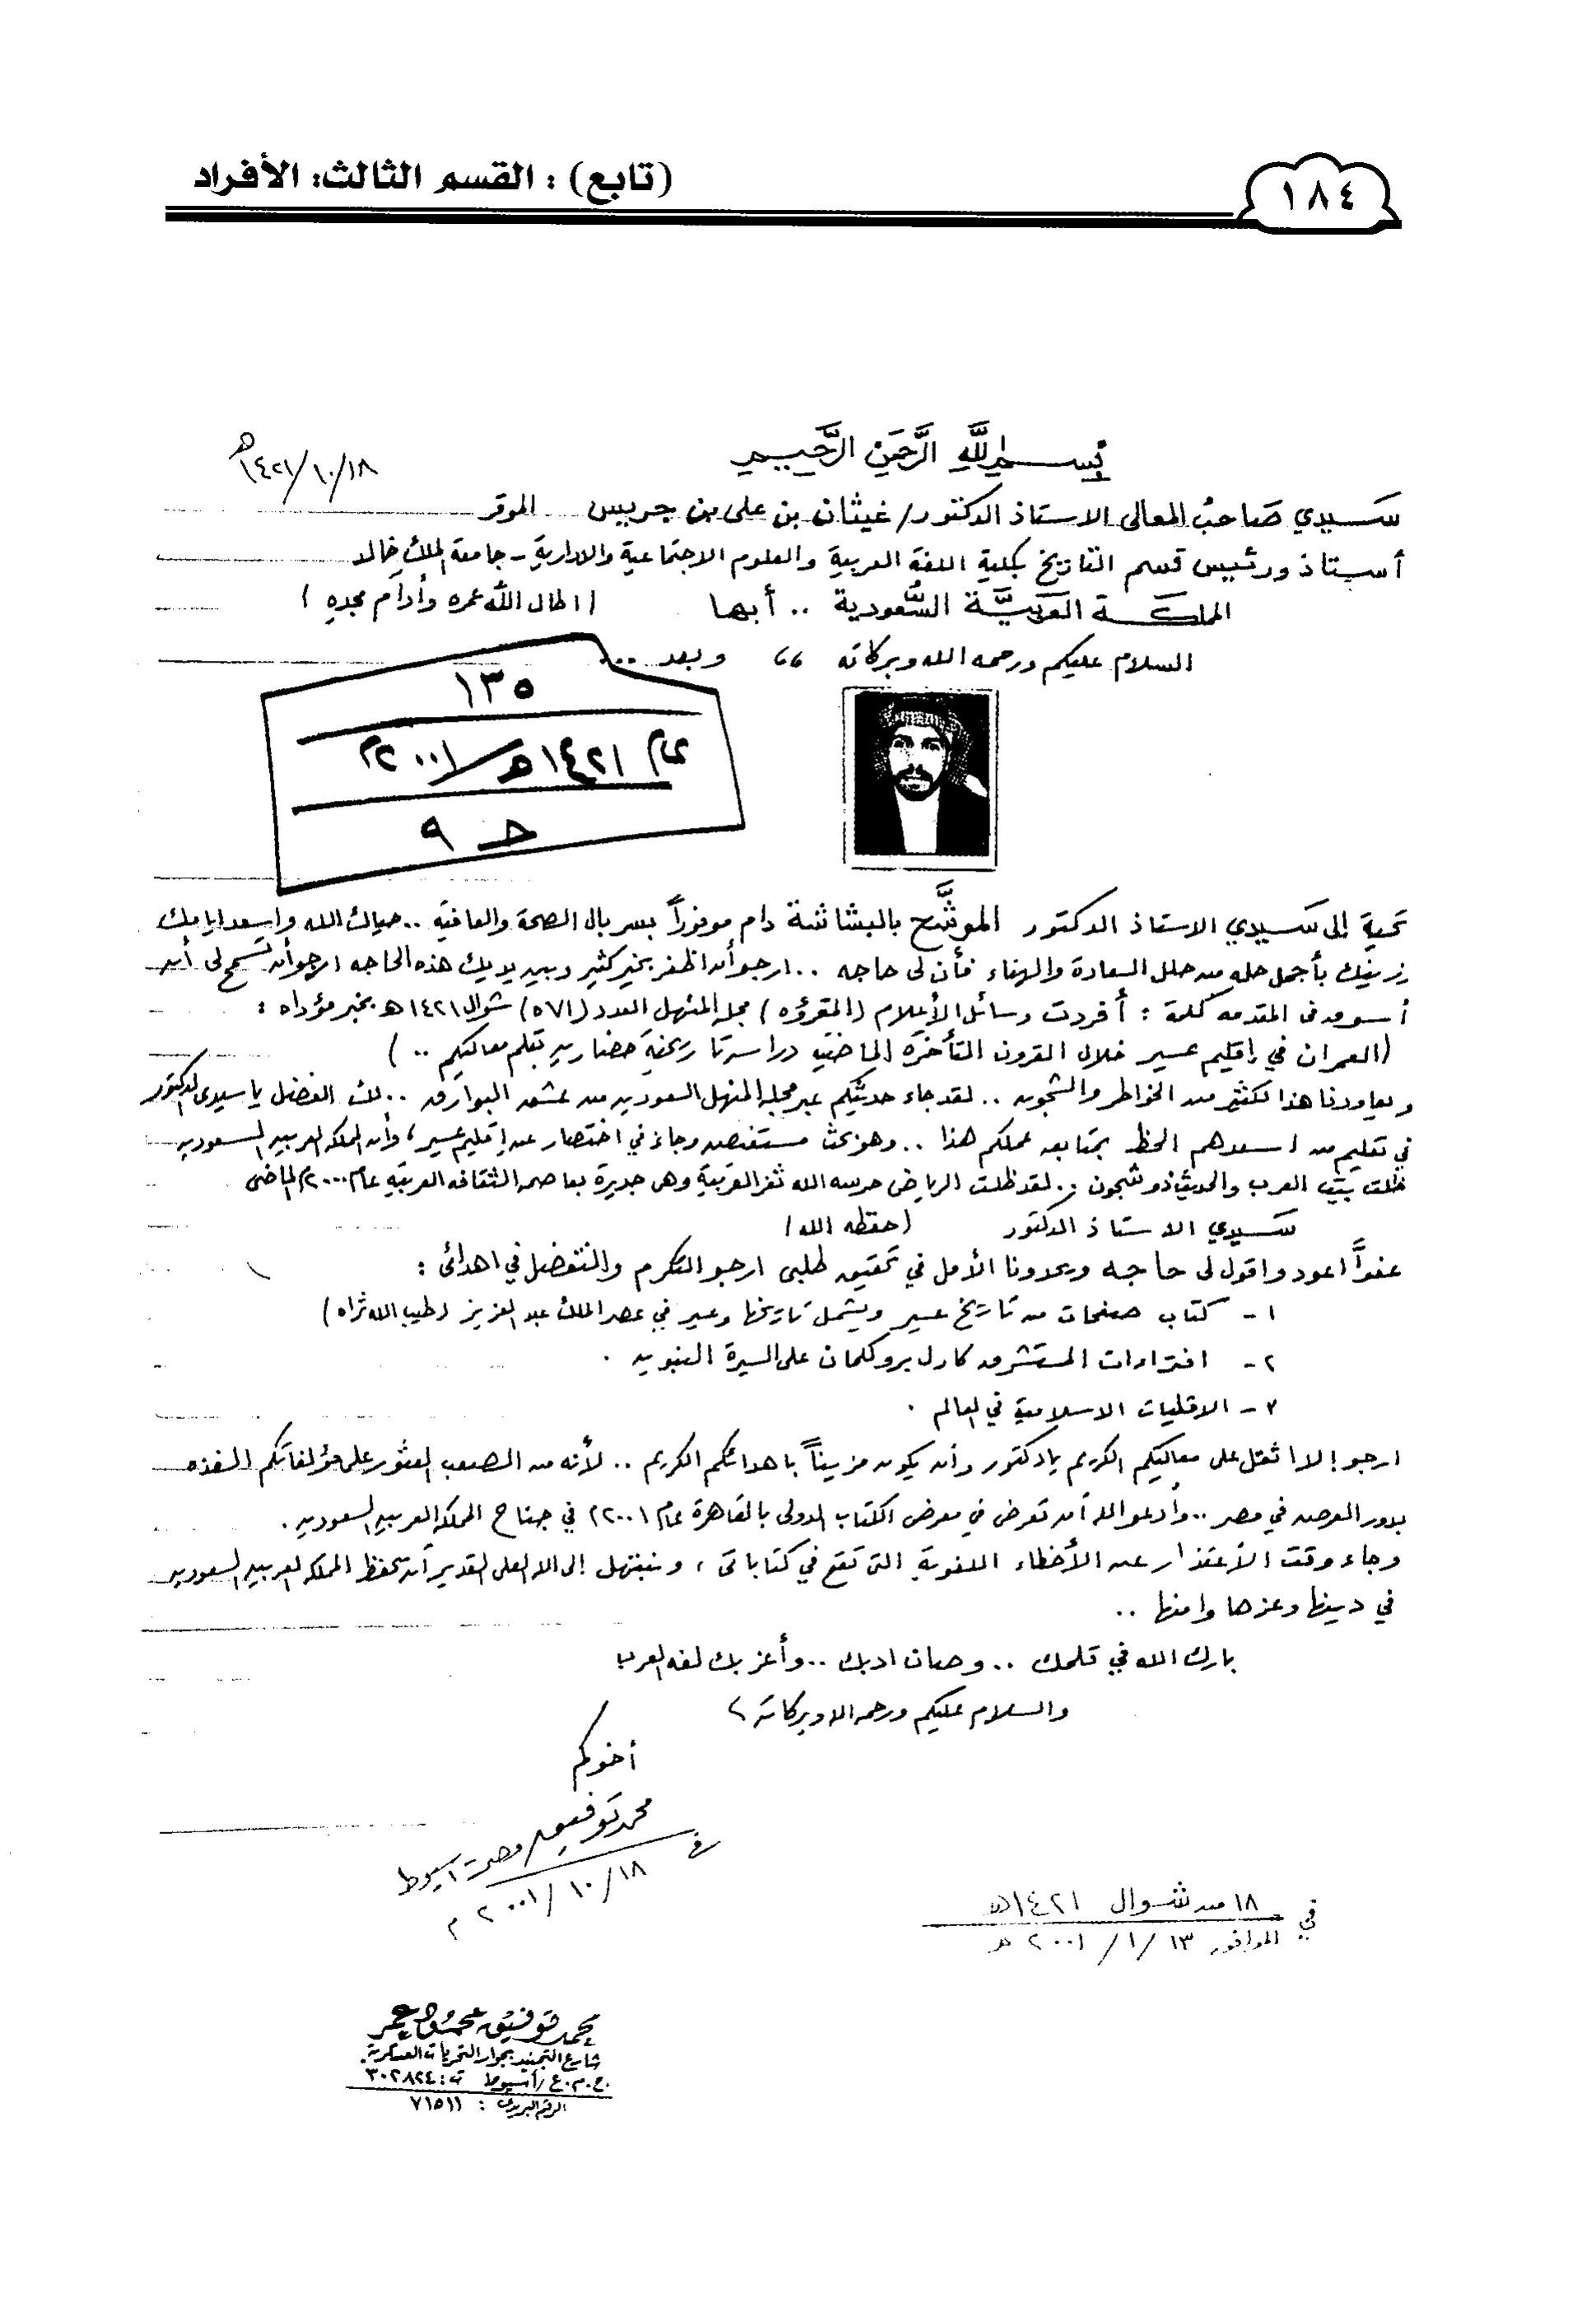 (تابع) : القسم الثالث: الأفراد
١٨٤
بسم الله الرَّحمَنِ الرَّحِيمِ
١٤٢١/١٠/١٨هـ
سيدي صاحب المعالى الاستاذ الدكتور/ غيثان بن على بن جريس الموقر
أستاذ ورئيس قسم التاريخ بكلية اللغة العربية والعلوم الاجتماعية والادارية - جامعة الملك خالد
المملكة العربية السعودية .. أبها (اطال الله عمره وأدام مجده)
السلام عليكم ورحمه الله وبركاته ،، وبعد ...
١٣٥
عام ١٤٢١هـ/٢٠٠١م
حـ ٩
تحية إلى سيدي الاستاذ الدكتور الموشَّح بالبشاشة دام موفوراً بسربال الصحة والعافية .. حياك الله واسعد ايامك
زينك بأجمل حله من حلل السعادة والهناء فأن لى حاجه .. ارجو أن اظفر بخير كثير وبين يديك هذه الحاجه ارجو أن تسمح لى أن
أسوق فى المقدمه كلمة : أفردت رسائل الأعلام (المقروءه) مجله المنهل العدد (٥٧١) شوال ١٤٢١هـ بخبر مؤداه :
(العمران في إقليم عسير خلال القرون المتأخره الماضية دراسة تاريخية حضاريه بقلم معاليكم .. )
ويعاودنا هذا لكثير من الخواطر والشجون .. لقد جاء حديثكم عبر مجله المنهل السعوديه من عشق البوارق .. لك الفضل يا سيدى الدكتور
في تعليم من اسعدهم الحظ بمتابعه عملكم هذا .. وهو بحث مستفيض وجاء في اختصار عن إقليم عسير، وأن المملكه العربيه السعوديه
ظلت بيت العرب والحديث ذو شجون .. لقد ظلت الرياض حرسه الله ثغر العربية وهى جديرة بعاصمه الثقافه العربية عام ٢٠٠٠م الماضى
سيدي الاستاذ الدكتور (حفظه الله)
عفواً اعود واقول لى حاجه ويحدونا الأمل في تحقيق طلبى ارجو التكرم والتفضل في اهدائى :
١ - كتاب صفحات من تاريخ عسير ويشمل تاريخها وعسير في عصر الملك عبد العزيز (طيب الله ثراه)
٢ - افتراءات المستشرق كارل بروكلمان على السيرة النبويه .
٣ - الاقليات الاسلامية في العالم .
ارجو إلا اثقل على معاليكم الكريم يا دكتور وأن يكون مزيناً باهدائكم الكريم .. لأنه من الصعب العثور على مؤلفاتكم الفذه
بدور العرض في مصر .. وأدعو الله أن تعرض في معرض الكتاب الدولى بالقاهرة عام ٢٠٠١م في جناح المملكه العربيه السعوديه .
وجاء وقت الأعتذار عن الأخطاء اللغوية التى تقع في كتاباتى ، ونبتهل إلى الله العلى القدير أن يحفظ المملكه العربيه السعوديه
في دينها وعزها وامنها ..
بارك الله في قلمك .. وصان ادبك .. وأعز بك لغه العرب
والسلام عليكم ورحمه الله وبركاته
أخوكم
محمد توفيق / مصر - اسيوط
في ٢٠٠١/١٠/١٨م
في ١٨ من شوال ١٤٢١هـ
الموافق ١٣/١/٢٠٠١م
محمد توفيق محمود عمر
شارع التجنيد بجوار التحريات العسكرية
ج.م.ع / أسيوط ت: ٣٠٢٨٢٤
الرقم البريدى : ٧١٥١١